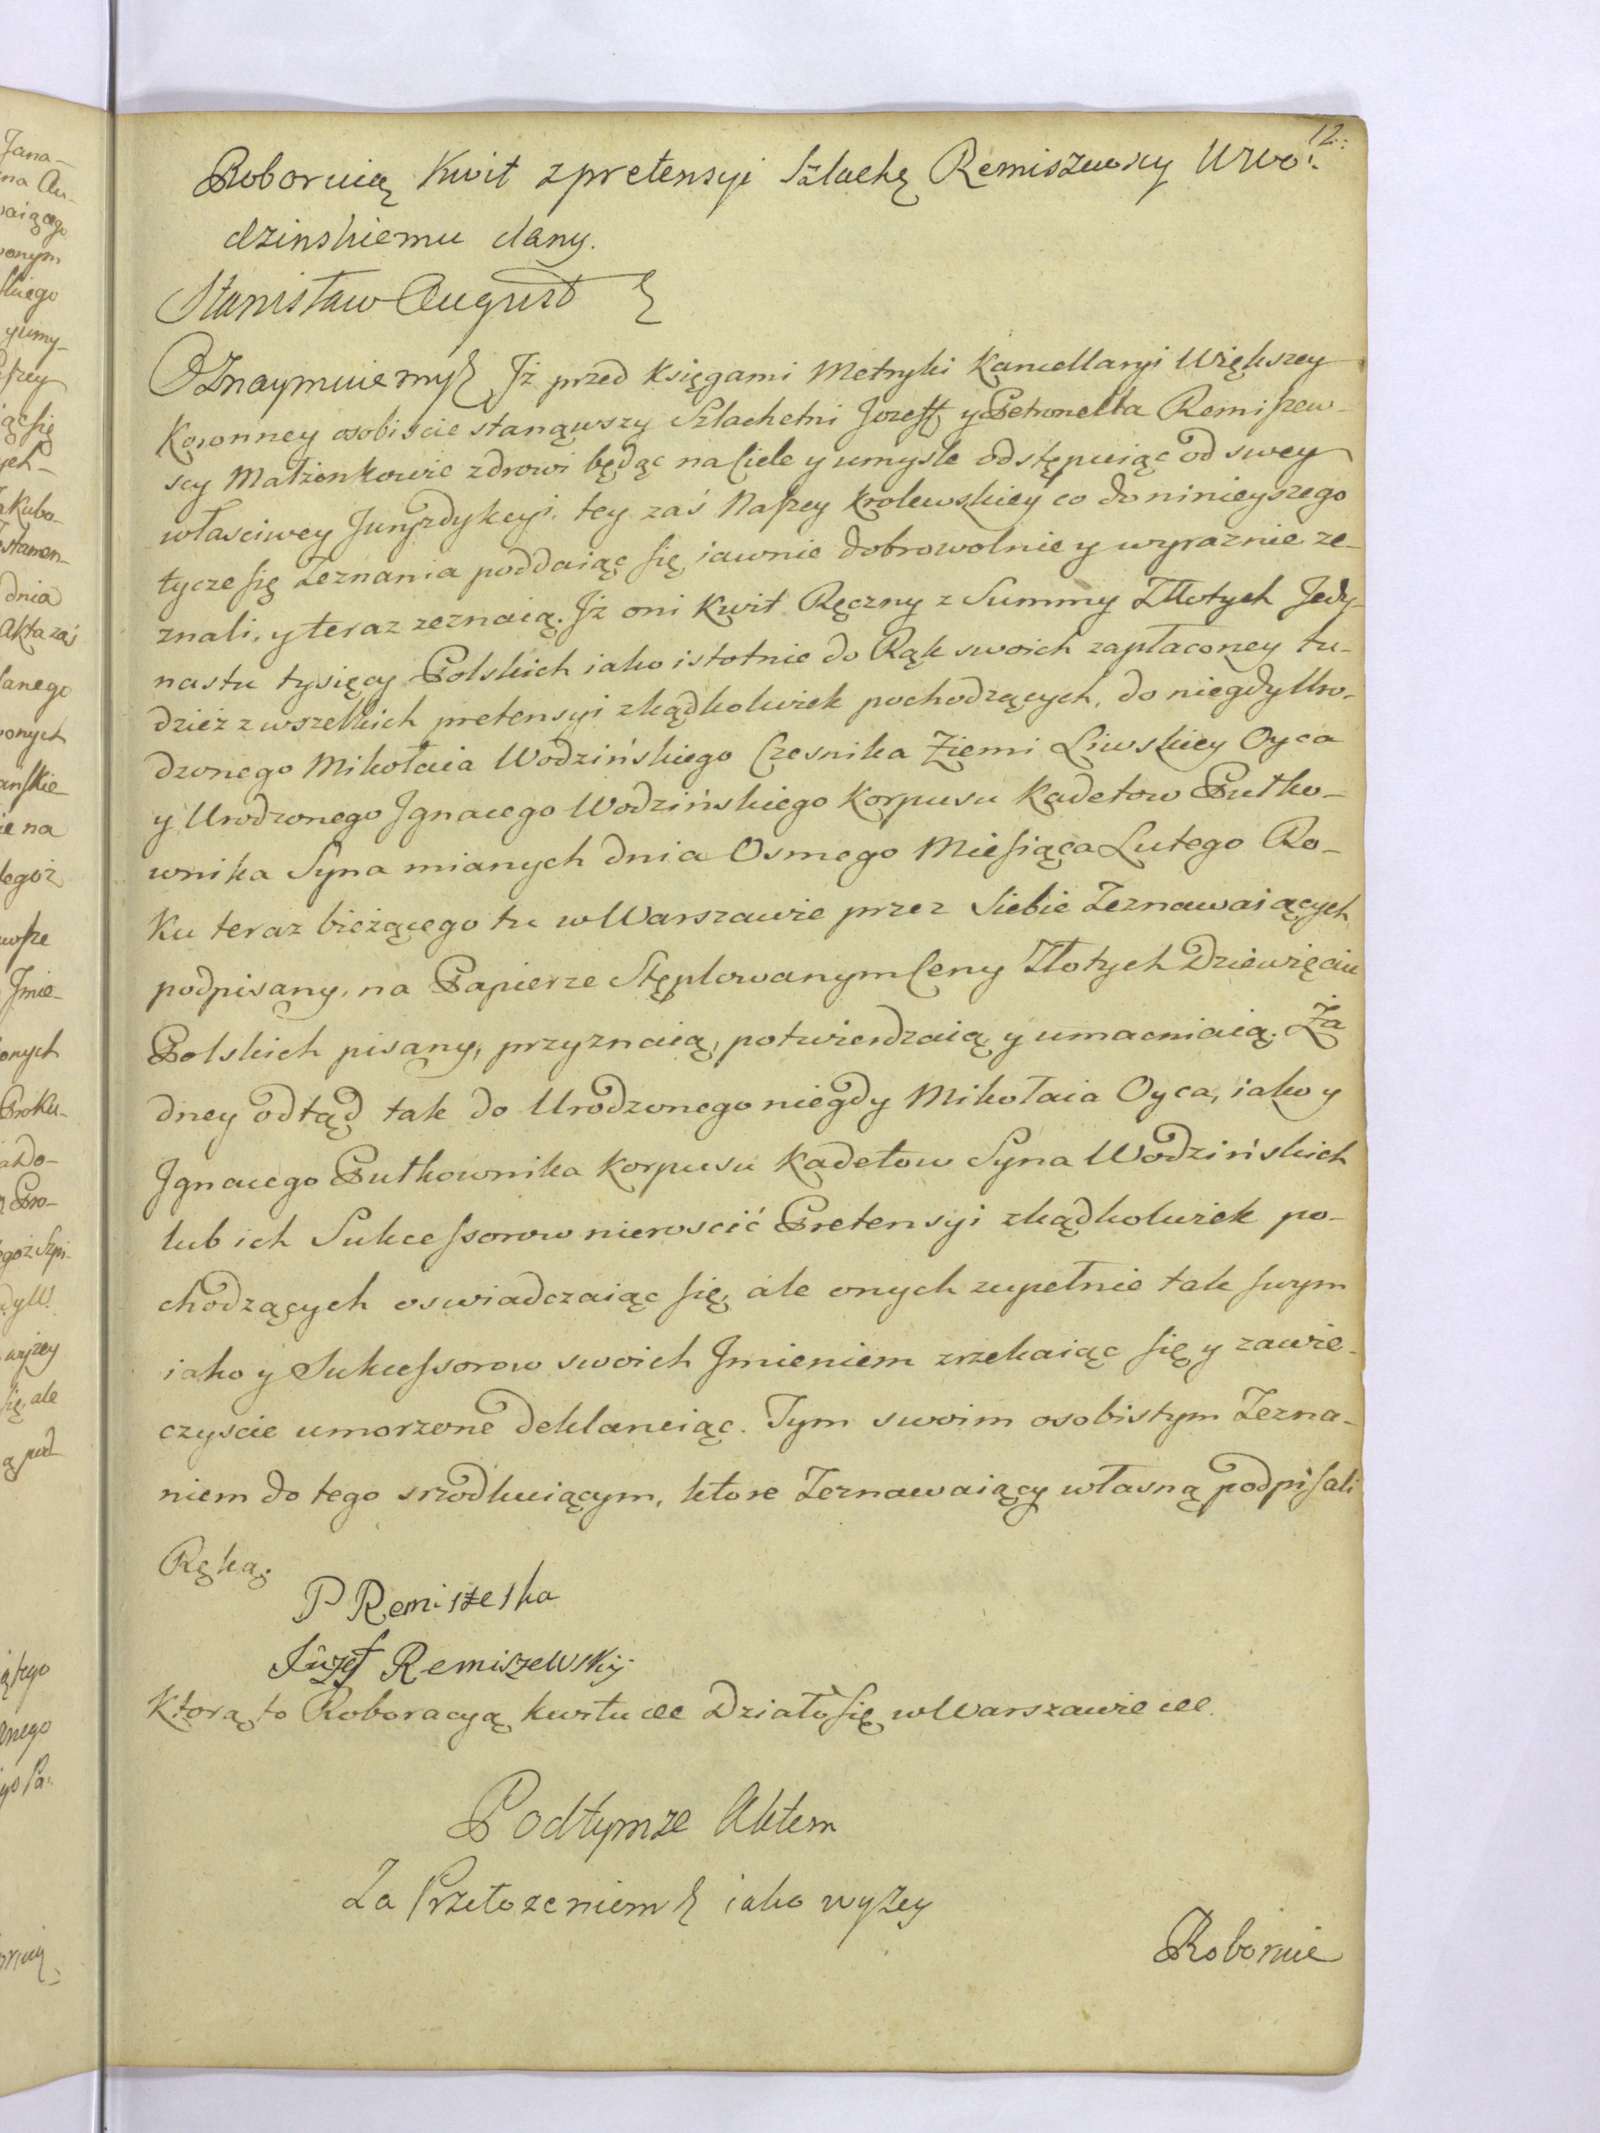 12.
Roboruią Kwit z pretensyi Szlachę Remiszewscy U. Wo-
dzinskiemu dany.
Stanisław August &
Oznaymuiemy & Jż przed Księgami Metryki Kancellaryi Większey
Koronney osobiscie stanąwszy Szlachetni Jozeff y Petronella Remiszew-
scy Małżonkowie zdrowi będąc na Ciele y umysle odstępuiąc od swey
własciwey Juryzdykcyi, tey zaś Naszey Krolewskiey co do ninieyszego
tycze się Zeznania poddaiąc się, iawnie dobrowolnie y wyraznie ze-
znali, y teraz zeznaią. Jż oni Kwit Ręczny z Summy Złłotych Jedy-
nastu tysięcy Polskich iako istotnie do Rąk swoich zapłaconey tu-
dzież z wszelkich pretensyi zkądkolwiek pochodzących, do niegdy Uro-
dzonego Mikołaia Wodzińskiego Czesnika Ziemi Liwskiey Oyca
y Urodzonego Jgnacego Wodzińskiego Korpusu Kadetow Pułko-
wnika Syna mianych dnia Osmego Miesiąca Lutego Ro-
ku teraz bieżącego tu w Warszawie przez Siebie Zeznawaiących
podpisany, na Papierze Stęplowanym Ceny Złotych Dziewięciu
Polskich pisany, przyznaią, potwierdzaią y umacniaią. Ża
dney odtąd tak do Urodzonego niegdy Mikołaia Oyca, iako y
Jgnacego Pułkownika Korpusu Kadetow Syna Wodzińskich
lub ich Sukcessorow nieroscić Pretensyi zkądkolwiek po-
chodzących oswiadczaiąc się, ale onych zupełnie tak swym
iako y Sukcessorow swoich Jmieniem zrzekaiąc się y zawie-
czyscie umorzone deklaruiąc. Tym swoim osobistym Zezna-
niem do tego srzodkuiącym, ktore Zeznawaiący własną podpisali
Ręką.
P Remiszeska
Józef Remiszewskij
Ktorą to Roboracyą kwitu &c Działo się w Warszawie &c.
Podtymze Aktem
Za Przełozeniem & iako wyzey
Roboruie